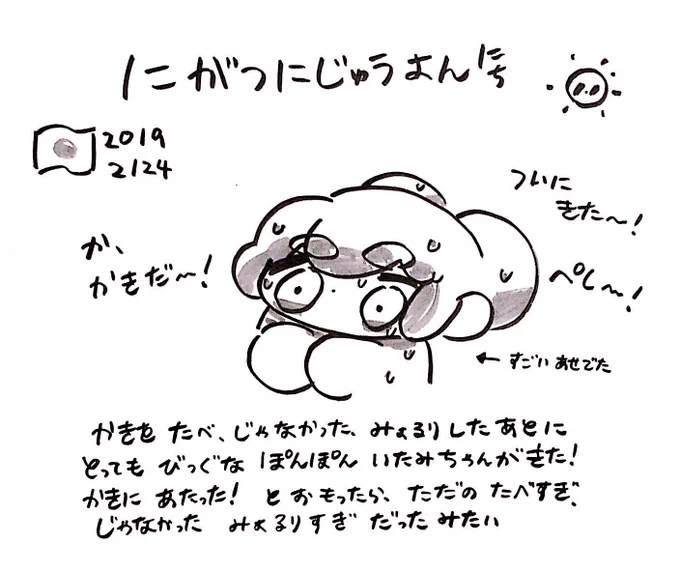 にがつにじゅうよんにち
2019
2/24
ついに
きた〜!
が、
かきだ〜!
ぺし〜!
← すごい あせでた
かきを たべ、じゃなかった、みぉるり したあとに
とっても びっぐな ぽんぽん いたみちゃんがきた!
かきに あたった! と おもったら、ただの たべすぎ、
じゃなかった みぉるりすぎ だったみたい